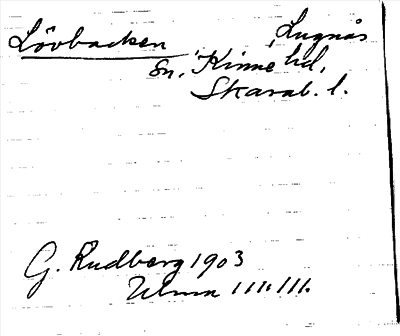 Lövbacken Lugnås
sn, Kinne hd,
Skarab. l.
G. Rudberg 1903